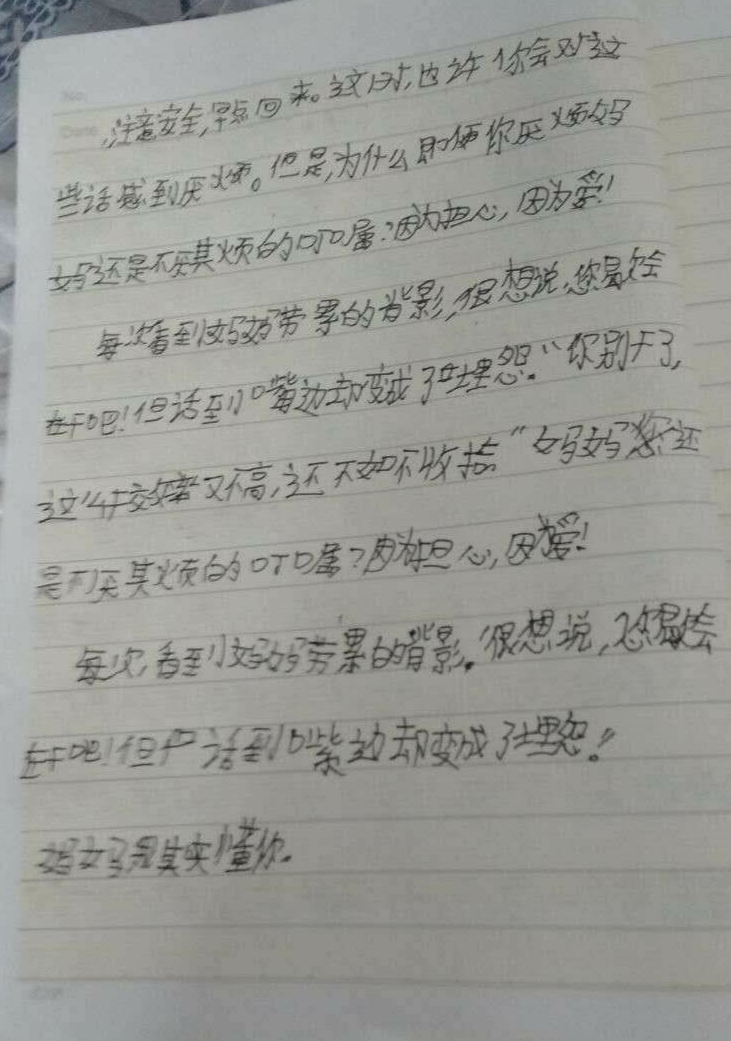 注意安全,早点回来。这时,也许你会对这
些话感到厌烦。但是,为什么即便你厌烦妈
妈还是不厌其烦的叮嘱?因为担心,因为爱!
每次看到妈妈劳累的背影,很想说,您歇会
吧!但话到口嘴边却变成了埋怨。“你别干了,
这么干效率又不高,还不如不收拾”妈妈您还
是不厌其烦的叮嘱?因为担心,因为爱!
每次,看到妈妈劳累的背影。很想说,您歇会
吧!但 话到口紫边却变成了埋怨。”
妈妈 其实懂你。